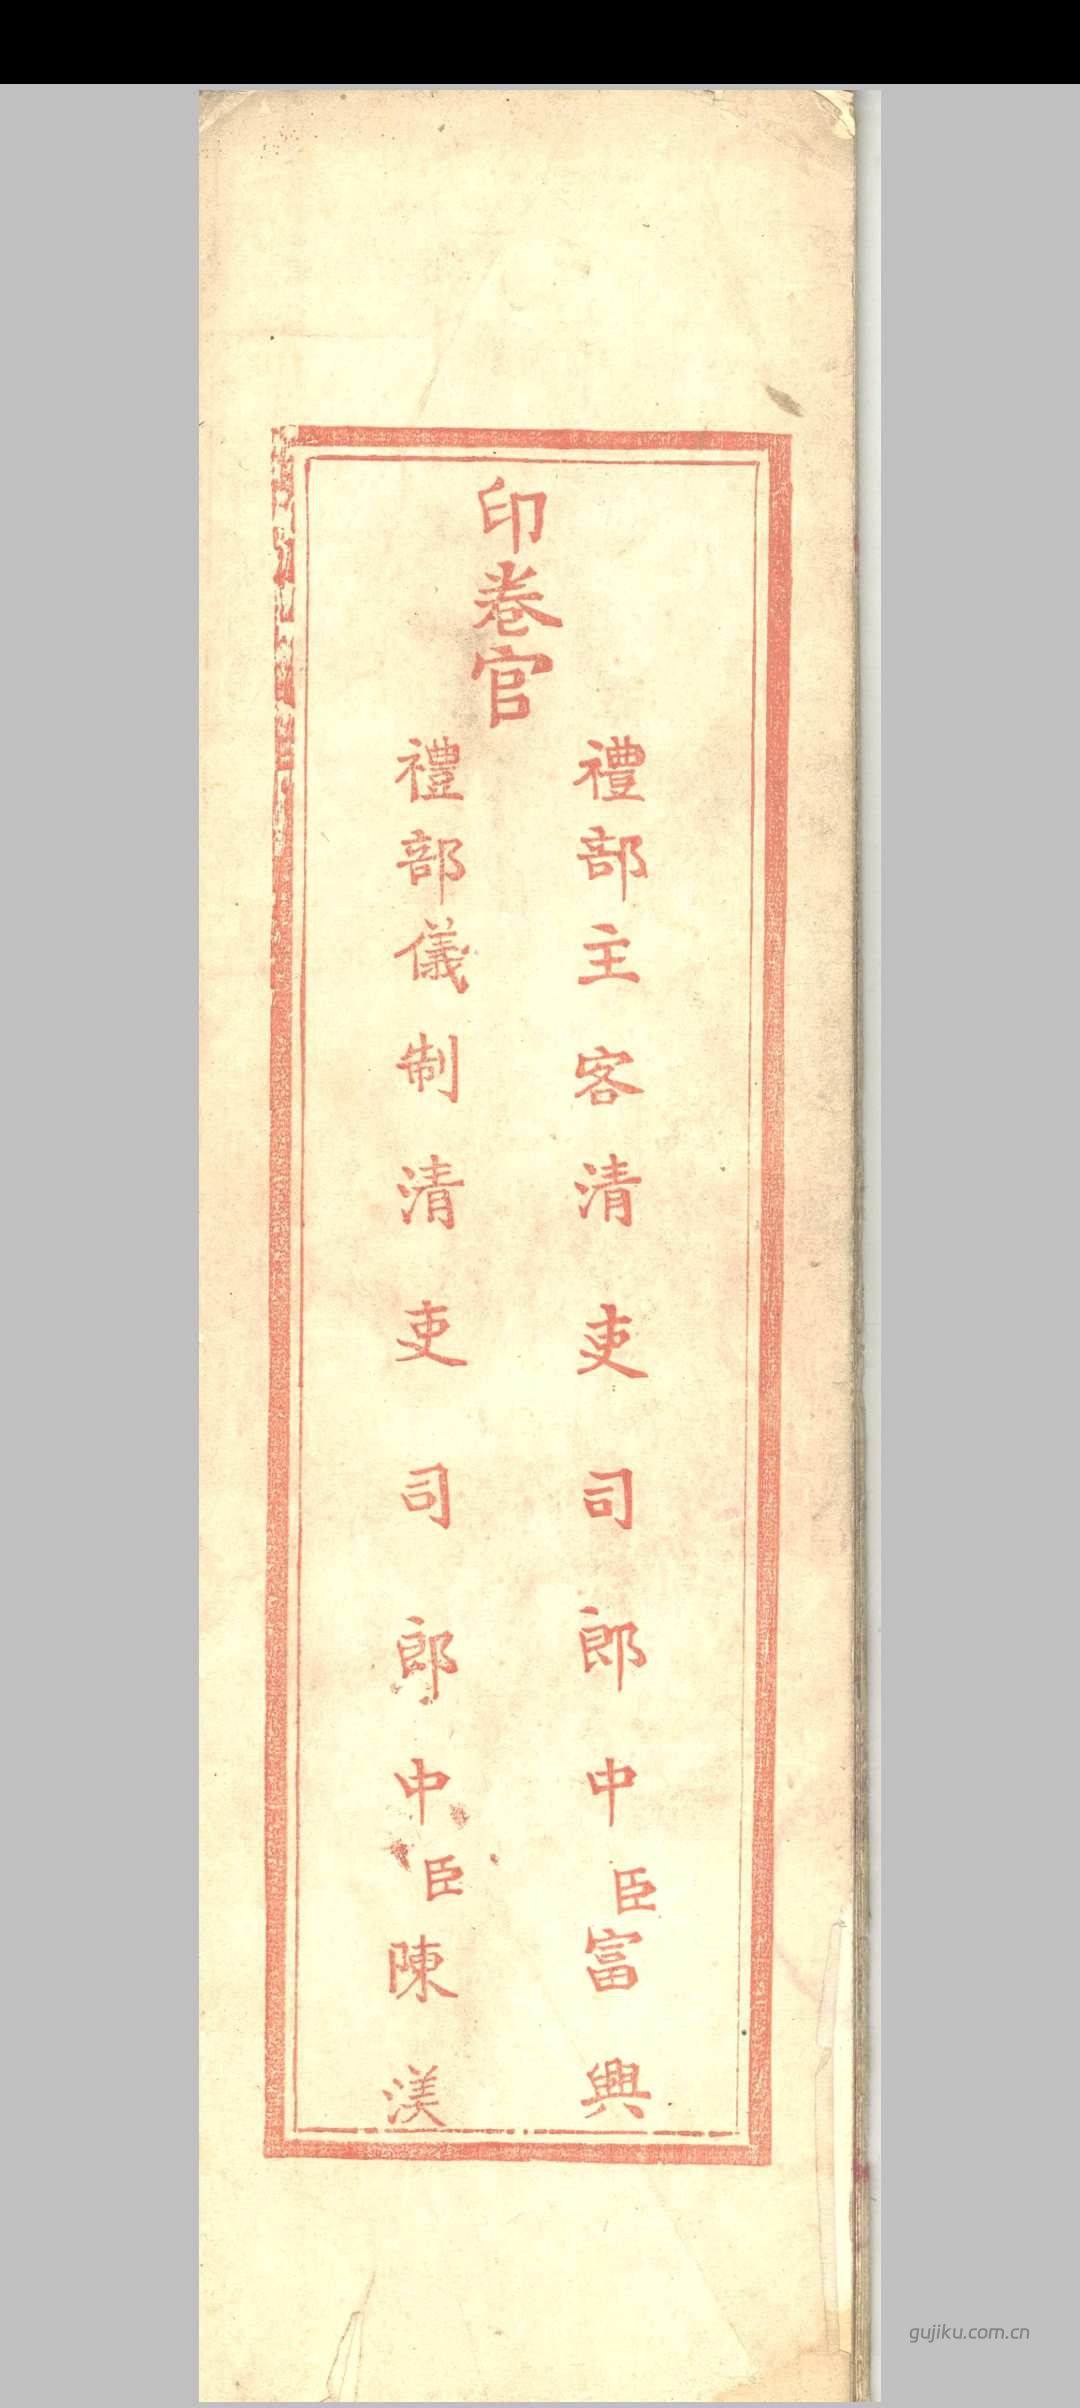 印卷官
禮部主客清吏司郎中臣富興
禮部儀制清吏司郎中臣陳渼
gujiku.com.cn